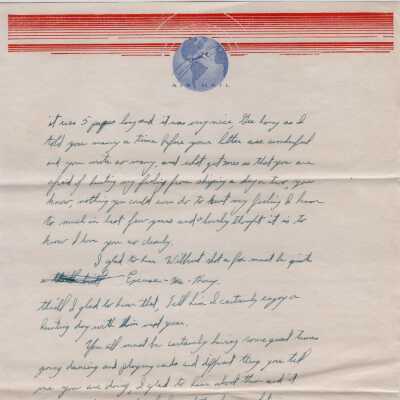 AIR MAIL
it was 5 pages long and it was very nice. Gee honey as I
told you many a time before your letter are wonderful
and you write so many, and what gets me is that you are
afraid of hurting my feeling from skipping a day or two, you
know nothing you could ever do to hurt my feeling I know
to much in last few years and lovely thought it is to
know I love you so dearly.
I glad to hear Wilbur shot a fox must be quite
a Excuse - Me - Honey.
thrill I glad to hear that, Tell him I certainly enjoy a
hunting day with him next year.
You all must be certainly having some good times
going dancing and playing cards and different thing you tell
me you are doing, I glad to hear about them and it